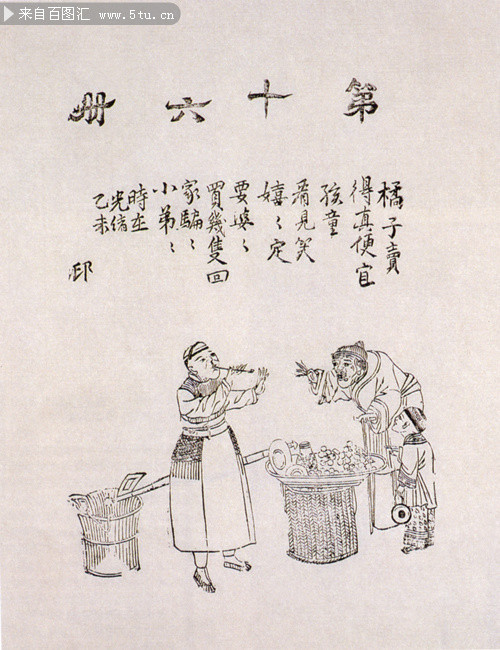 来自百图汇 www.5tu.cn
第十六冊
橘子賣
得真便宜
孩童
看見笑
嬉〻定
要婆〻
買幾隻回
家騙〻
小弟〻
時在
光緒
乙未
邱